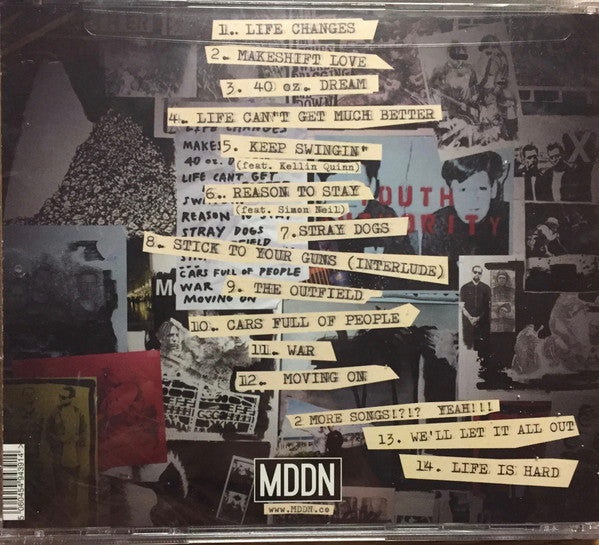 1. LIFE CHANGES
2. MAKESHIFT LOVE
3. 40 oz. DREAM
4. LIFE CAN'T GET MUCH BETTER
LIFE CHANGES
MAKES
5. KEEP SWINGIN"
(feat. Kellin Quinn)
40 oz. D
LIFE CANT GET
6. REASON TO STAY
(feat. Simon Neil)
REASON TO STAY
OUTH
ORITY
X
7. STRAY DOGS
STRAY DOGS
8. STICK TO YOUR GUNS (INTERLUDE)
CARS FULL OF PEOPLE
9. THE OUTFIELD
WAR
MOVING ON
10. CARS FULL OF PEOPLE
11. WAR
12. MOVING ON
2 MORE SONGS!?!? YEAH!!!
13. WE'LL LET IT ALL OUT
14. LIFE IS HARD
MDDN
www.MDDN.co